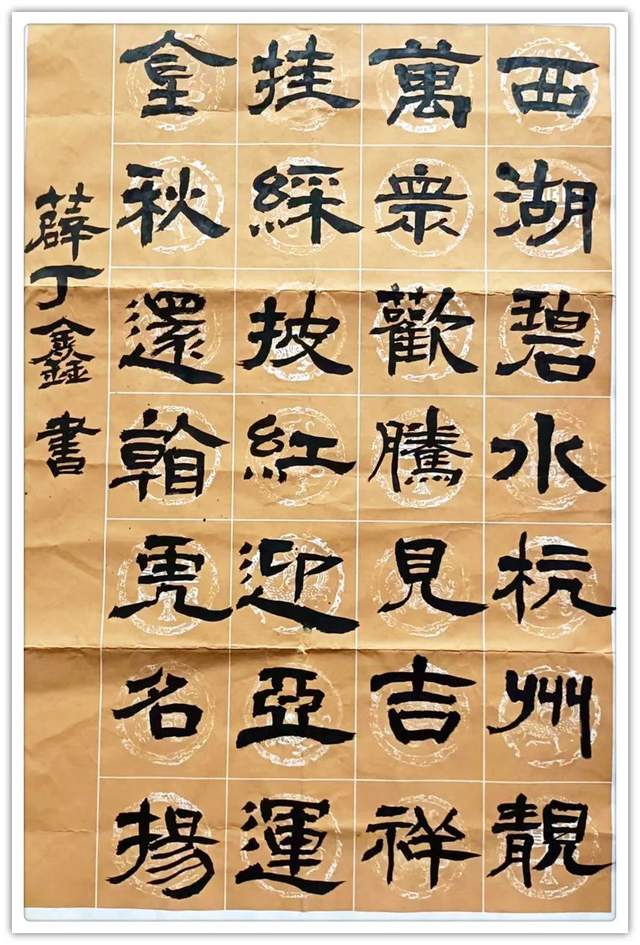 西湖碧水杭州靚
萬眾歡騰見吉祥
挂綵披紅迎亞運
金秋還朝虎名揚
薛丁鑫書